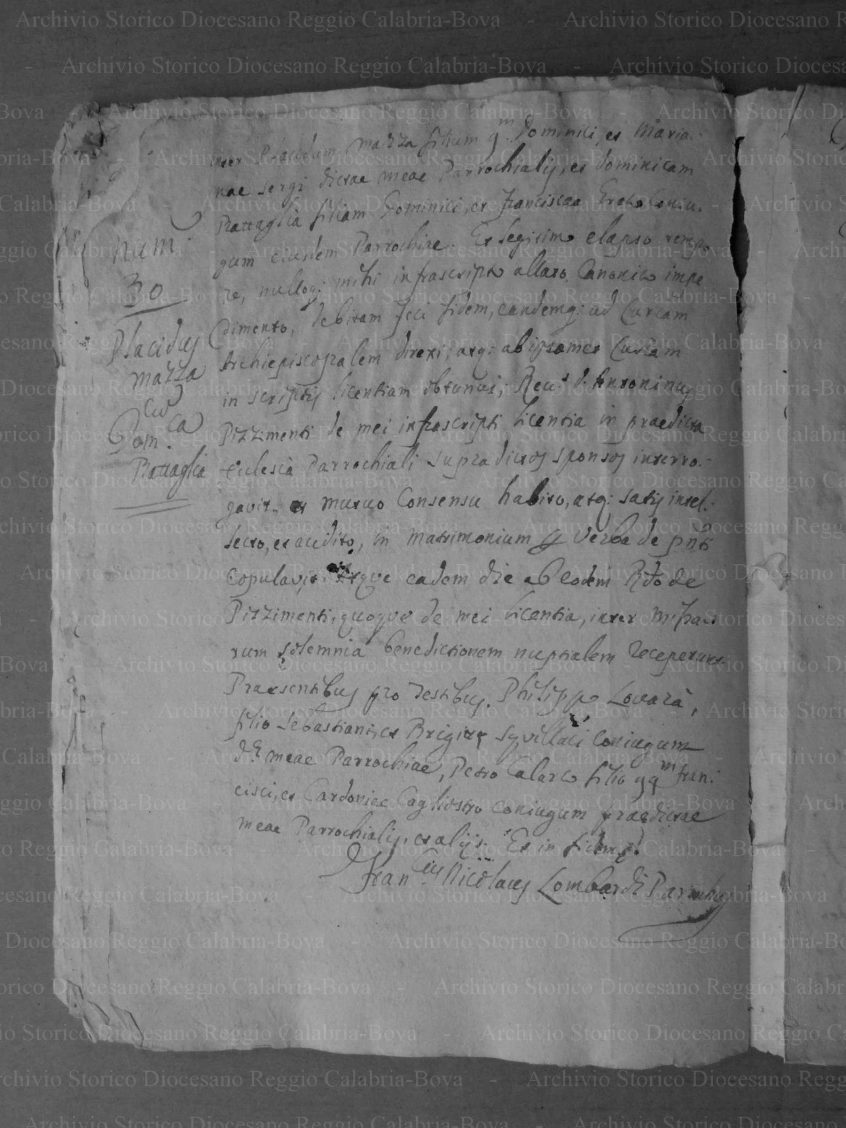 num.
30
Placidus
mazza
cu
Dom.ca
Battaglia
inter Placidum mazza filium qm Dominici, et Maria-
nae sergi dictae meae Parrochialis, et dominicam
Battaglia filiam Dominici, et Franciscae Coniu-
gum eiusdem Parrochiae. Et legitimo elapso tempo
re, nulloq; mihi infrascripto allato Canonico impe
dimento, debitam feci fidem, eandemq; ad Curiam
Archiepiscopalem direxi; atq; ab ipsamet Curiam
in scriptis licentiam obtinui; Reus D. Antoninus
Pizzimenti de mei infrascripti licentia in praedicta
Ecclesia Parrochiali supradictos sponsos interro-
gavit, et mutuo Consensu habito, atq; satis intel-
lecto, et audito, in matrimonium per verba de pnti
Copulavit. Atque eadem die ab eodem Rdo de
Pizzimenti, quoque de mei licentia, inter missa-
rum solemnia benedictionem nuptialem receperunt
Praesentibus pro testibus. Philippo Lovarà,
filio sebastiani, et Brigitae squillaci coniugum
dae meae Parrochiae, Petro Calarco filio qqm fran-
cisci, et Cardoniae Cagliostro coniugum praedictae
meae Parrochialis, et aliis. Et in fidem
Fran.cus Nicolaus Lombardi Parochus
Archivio Storico Diocesano Reggio Calabria-Bova